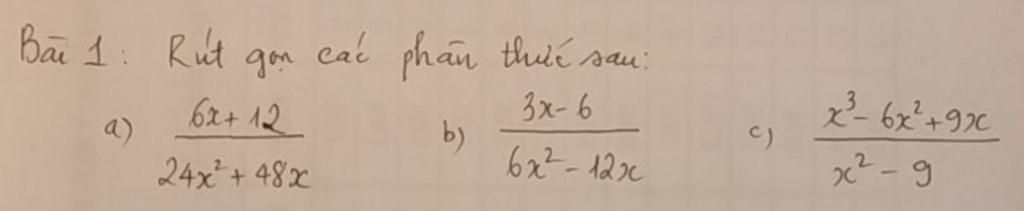 Bài 1: Rút gọn các phân thức sau:
a) \frac{6x+12}{24x^2+48x} b) \frac{3x-6}{6x^2-12x} c) \frac{x^3-6x^2+9x}{x^2-9}